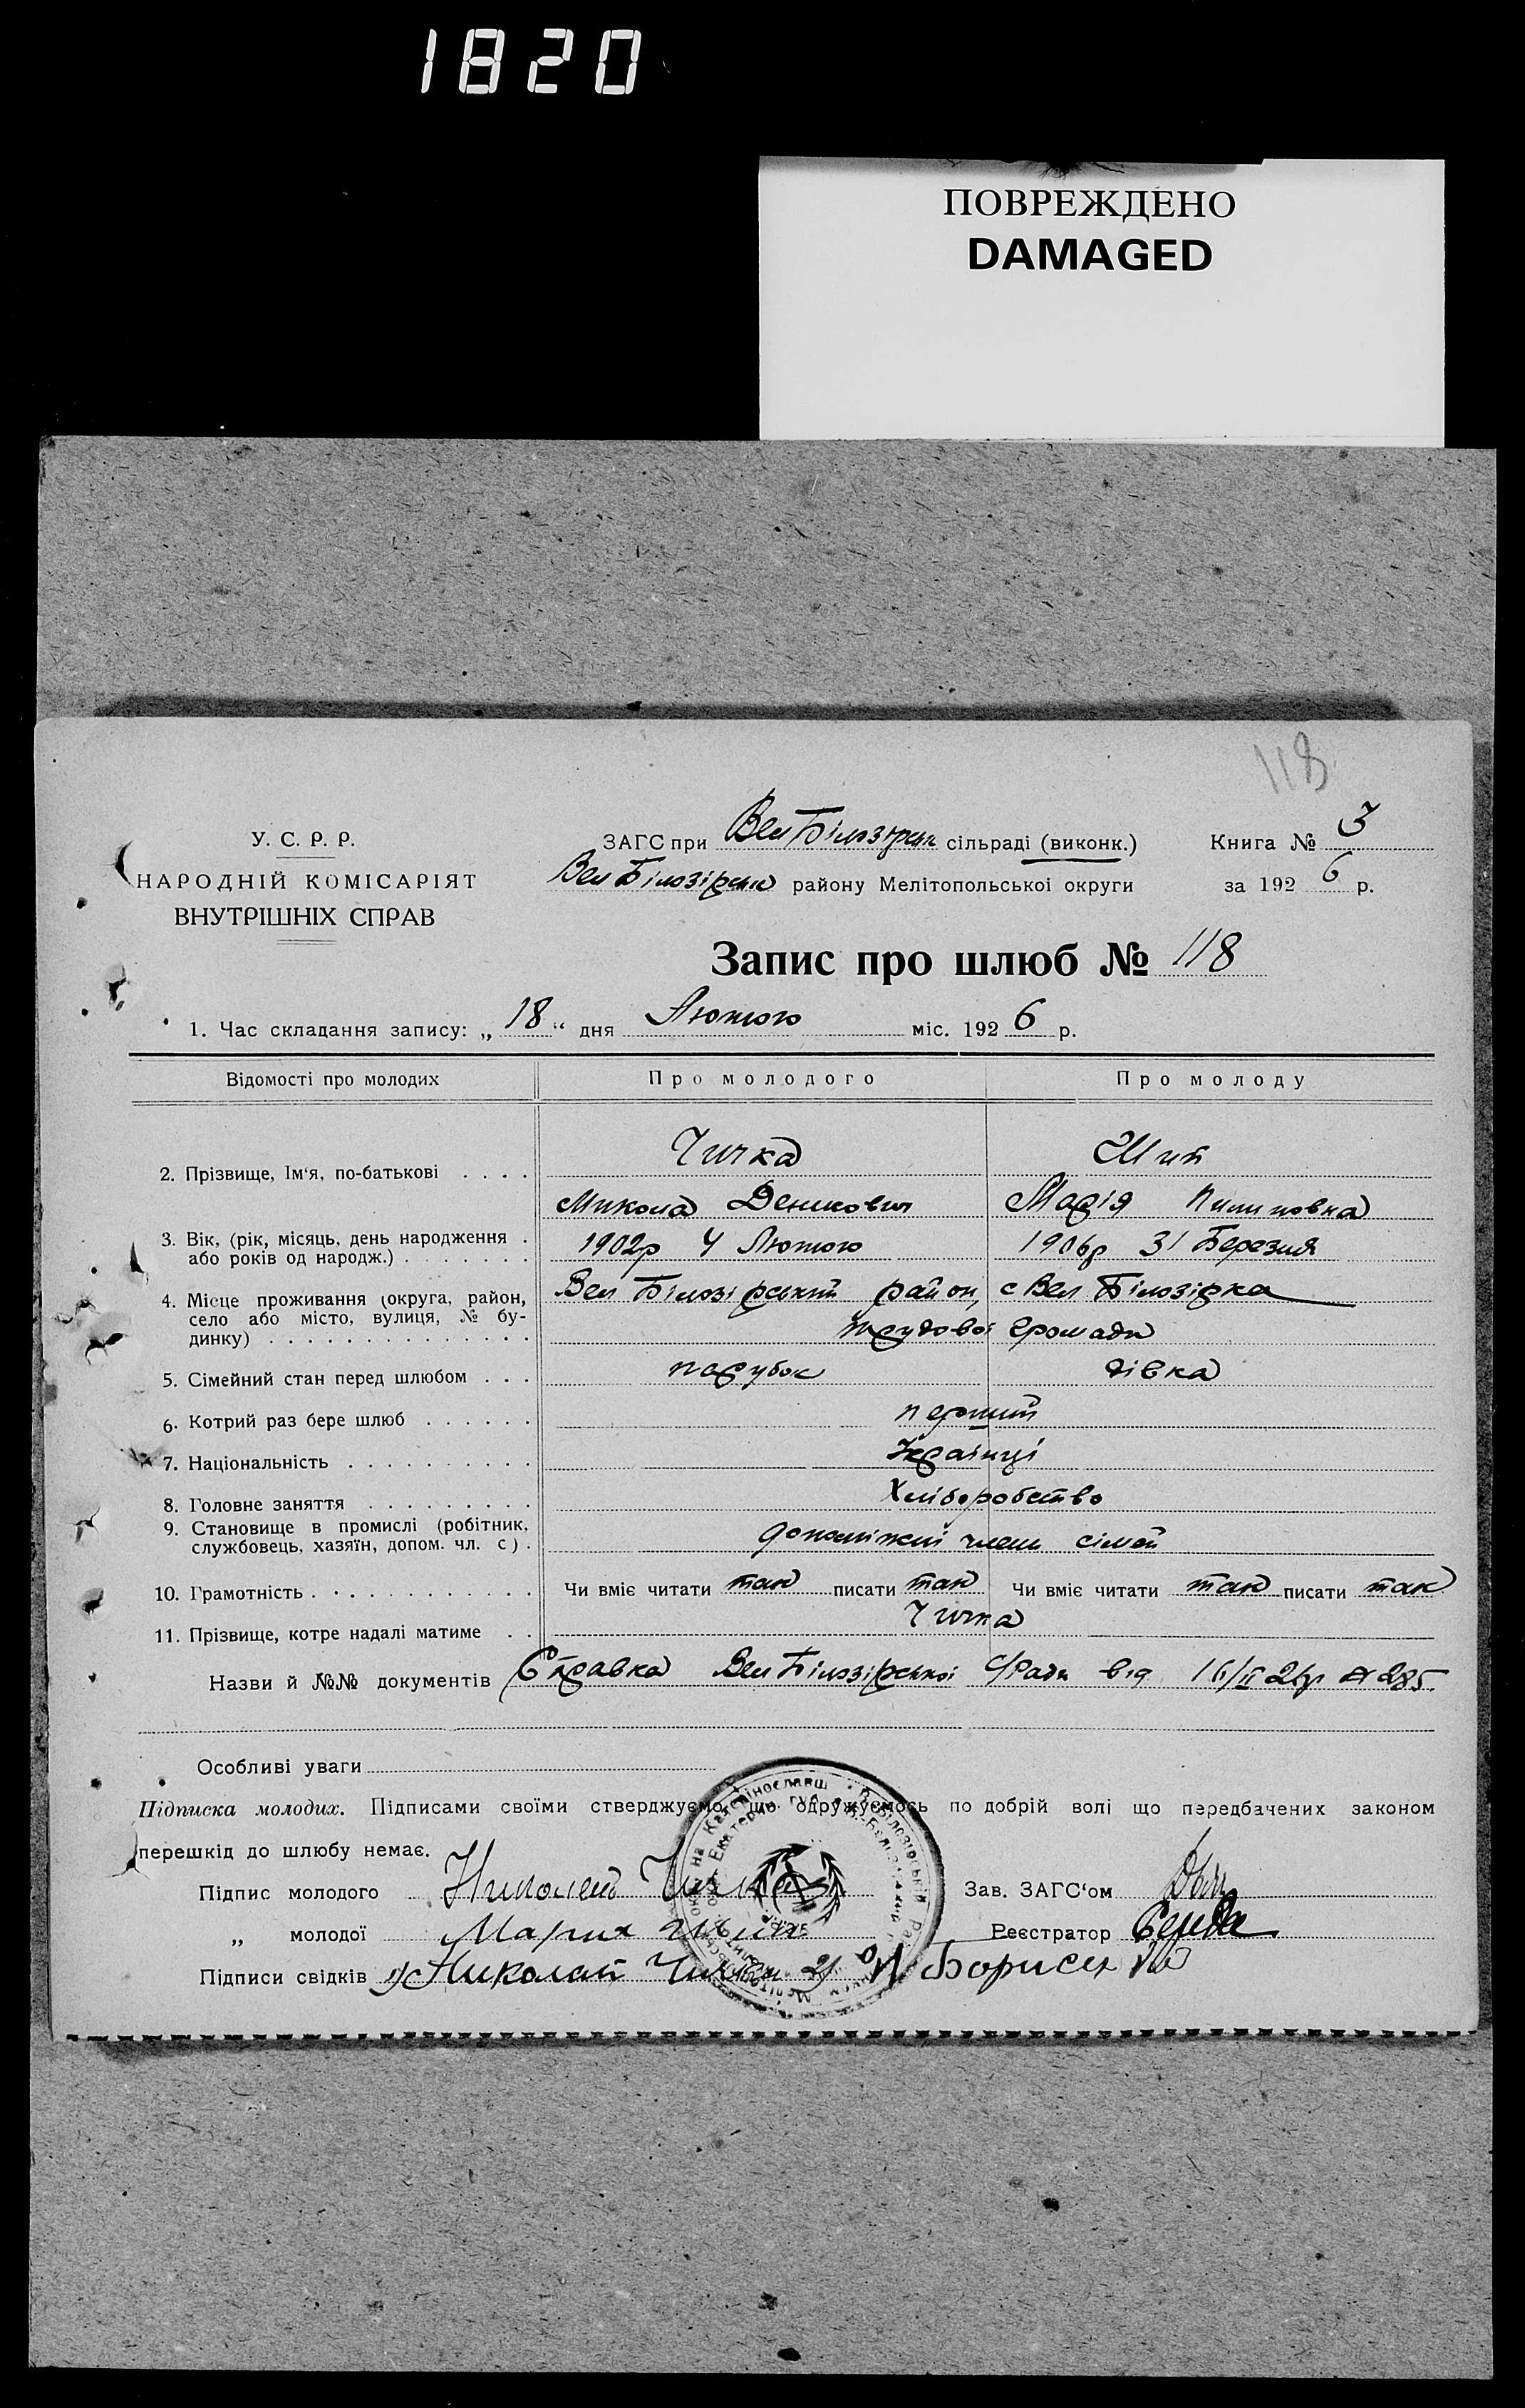 1820
ПОВРЕЖДЕНО
DAMAGED
118
У. С. Р. Р.
НАРОДНІЙ КОМІСАРІЯТ
ВНУТРІШНІХ СПРАВ
ЗАГС при Вел Білозірськ сільраді (виконк.) Книга № 3
Вел Білозірськ району Мелітопольської округи за 192 6 р.
Запис про шлюб № 118
1. Час складання запису: „ 18 “ дня Лютого міс. 192 6 р.
Відомості про молодих Про молодого Про молоду
2. Прізвище, Ім‘я, по-батькові . . . . Чичка Шип
Микола Денисович Марія Пилиповна
3. Вік, (рік, місяць, день народження . 1902р 4 Лютого 1906р 31 Березня
або років од народж.) . . . . . . .
4. Місце проживання (округа, район, Вел Білозірський район, с Вел Білозірка
село або місто, вулиця, № бу-
динку) . . . . . . . . . . . . . . трудової громади
5. Сімейний стан перед шлюбом . . . парубок дівка
6. Котрий раз бере шлюб . . . . . . перший
7. Національність . . . . . . . . . . Українці
8. Головне заняття . . . . . . . . . Хліборобство
9. Становище в промислі (робітник,
службовець, хазяїн, допом. чл. с) . члени сімей
10. Грамотність . . . . . . . . . . . . Чи вміє читати так писати так Чи вміє читати так писати так
11. Прізвище, котре надалі матиме . . Чичка
Назви й №№ документів Справка Вел Білозірської с/Ради від 16/II 26р № 285
Особливі уваги
Підписка молодих. Підписами своїми стверджуємо, що одружуємось по добрій волі що передбачених законом
перешкід до шлюбу немає.
Підпис молодого Николай Чичка Зав. ЗАГС‘ом
„ молодої Мария Шип Реєстратор Середа
Підписи свідків 1) Николай 2) Борисен